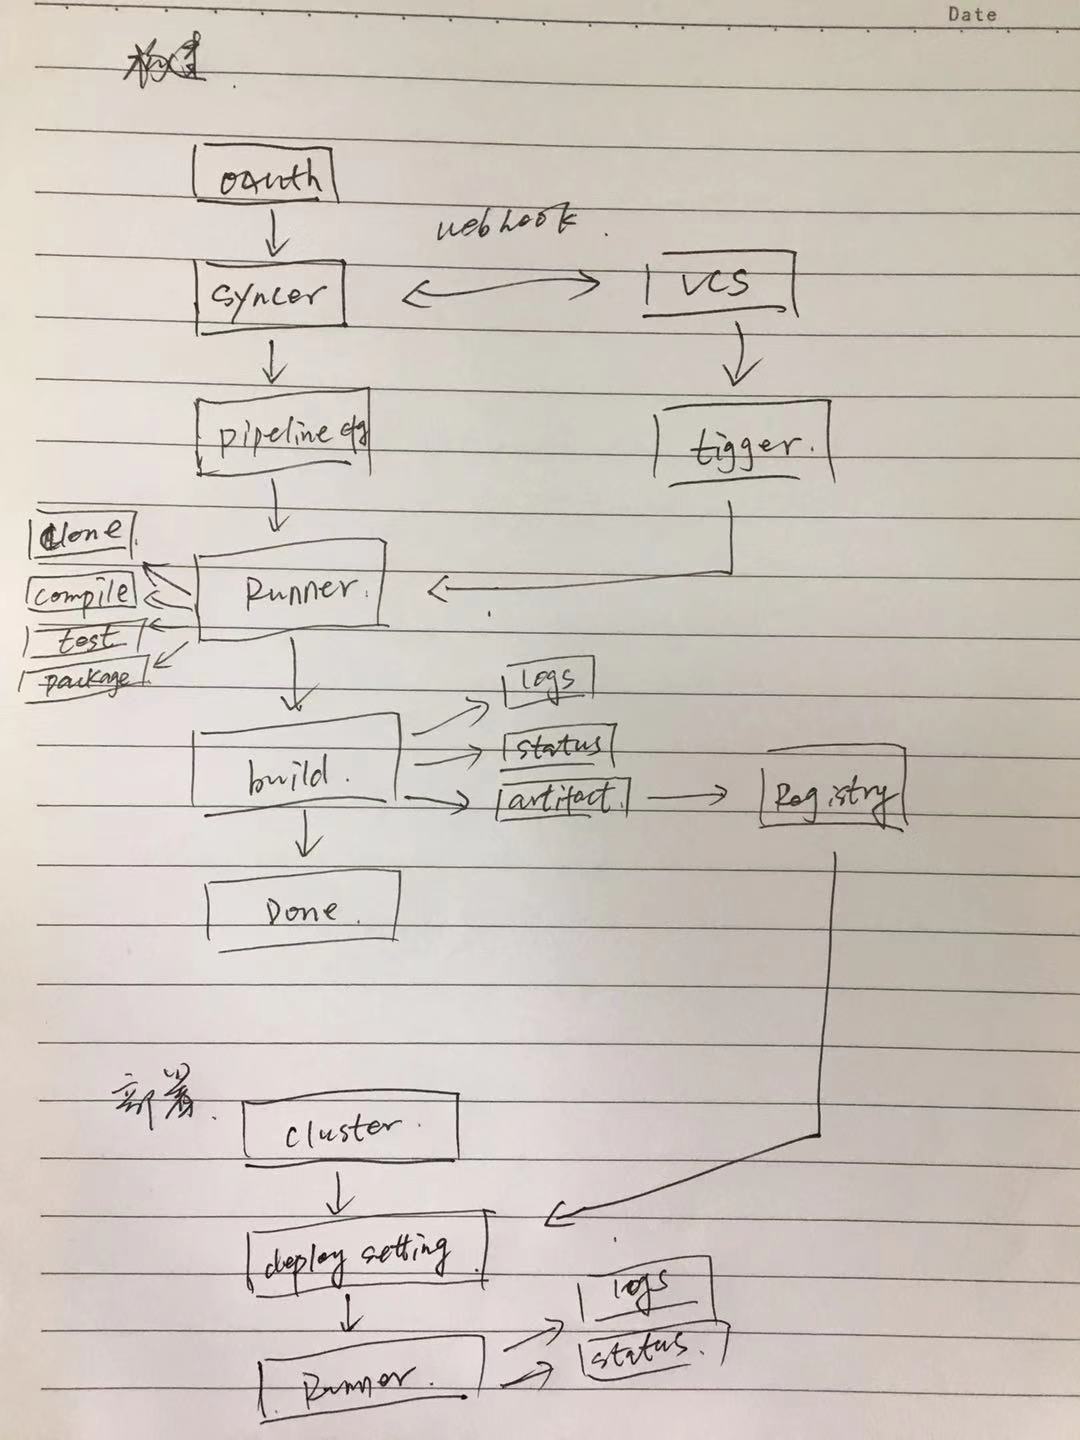 Date
构建.
OAuth
webhook.
syncer
VCS
pipeline cfg
tigger.
clone.
Runner.
compile
test
package
logs
status
build.
artifact.
Registry
Done.
部署.
cluster.
deploy setting
logs
status.
Runner.